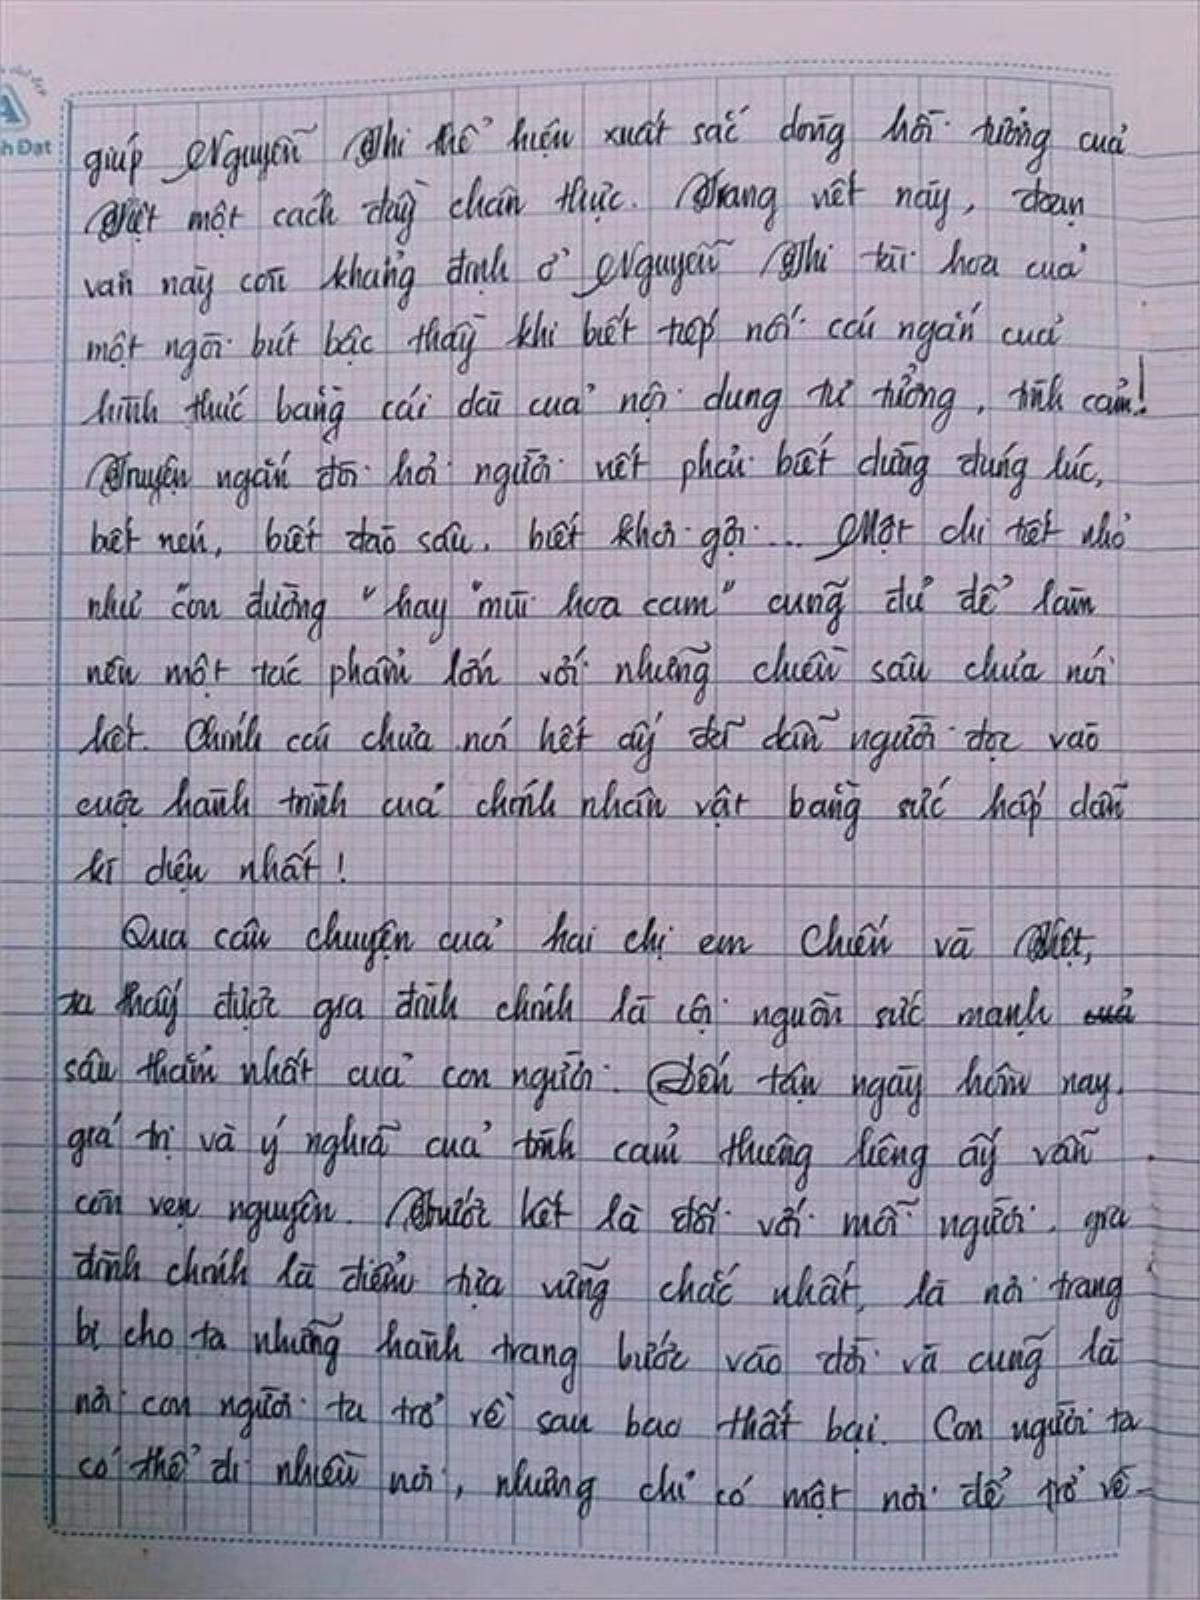 giúp Nguyễn Thi thể hiện xuất sắc dòng hồi tưởng của
Việt một cách đầy chân thực. Trang viết này, đoạn
văn này còn khẳng định ở Nguyễn Thi tài hoa của
một ngòi bút bậc thầy khi biết tiếp nối cái ngắn của
hình thức bằng cái dài của nội dung tư tưởng, tình cảm!
Truyện ngắn đòi hỏi người viết phải biết dừng đúng lúc,
biết nén, biết đào sâu, biết khơi gợi... Một chi tiết nhỏ
như "con đường" hay "mùi hoa cam" cũng đủ để làm
nên một tác phẩm lớn với những chiều sâu chưa nói
hết. Chính cái chưa nói hết ấy để dẫn người đọc vào
cuộc hành trình của chính nhân vật bằng sức hấp dẫn
kì diệu nhất!
Qua câu chuyện của hai chị em Chiến và Việt,
ta thấy được gia đình chính là cội nguồn sức mạnh
sâu thẳm nhất của con người. Đến tận ngày hôm nay,
giá trị và ý nghĩa của tình cảm thiêng liêng ấy vẫn
còn vẹn nguyên. Trước hết là đối với mỗi người, gia
đình chính là điểm tựa vững chắc nhất, là nơi trang
bị cho ta những hành trang bước vào đời và cũng là
nơi con người ta trở về sau bao thất bại. Con người ta
có thể đi nhiều nơi, nhưng chỉ có một nơi để trở về-